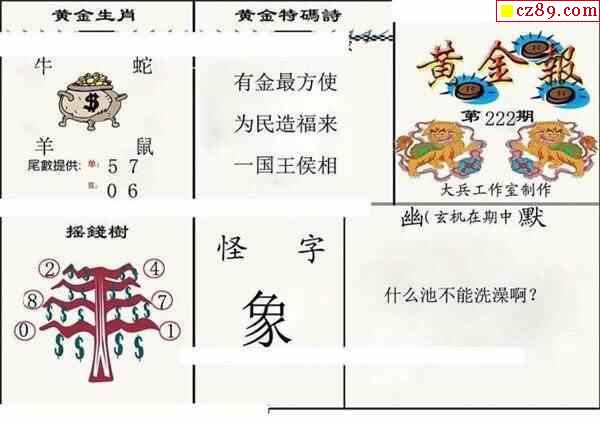 cz89.com
黄金生肖
牛 蛇
羊 鼠
尾數提供: 单: 5 7
0 6
黄金特碼詩
有金最方使
为民造福来
一国王侯相
黄金報
第222期
大兵工作室制作
摇錢樹
2 4
8 7
0 1
怪字
象
幽(玄机在期中)默
什么池不能洗澡啊?